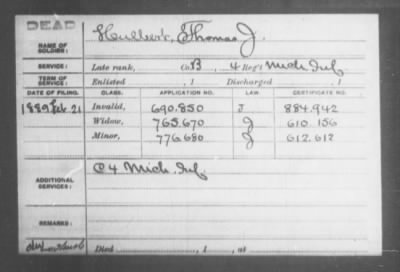 DEAD
NAME OF SOLDIER: Hulbert, Thomas J.
SERVICE: Late rank, Co. B, 4 Reg't Mich Inf.
TERM OF SERVICE: Enlisted , 1 Discharged , 1
DATE OF FILING. CLASS. APPLICATION NO. LAW. CERTIFICATE NO.
1889 Feb 21 Invalid, 690.850 J 884.942
Widow, 765.670 J 610 156
Minor, 776 680 J 612.612
ADDITIONAL SERVICES: C 4 Mich Inf.
REMARKS:
Died , 1 , at